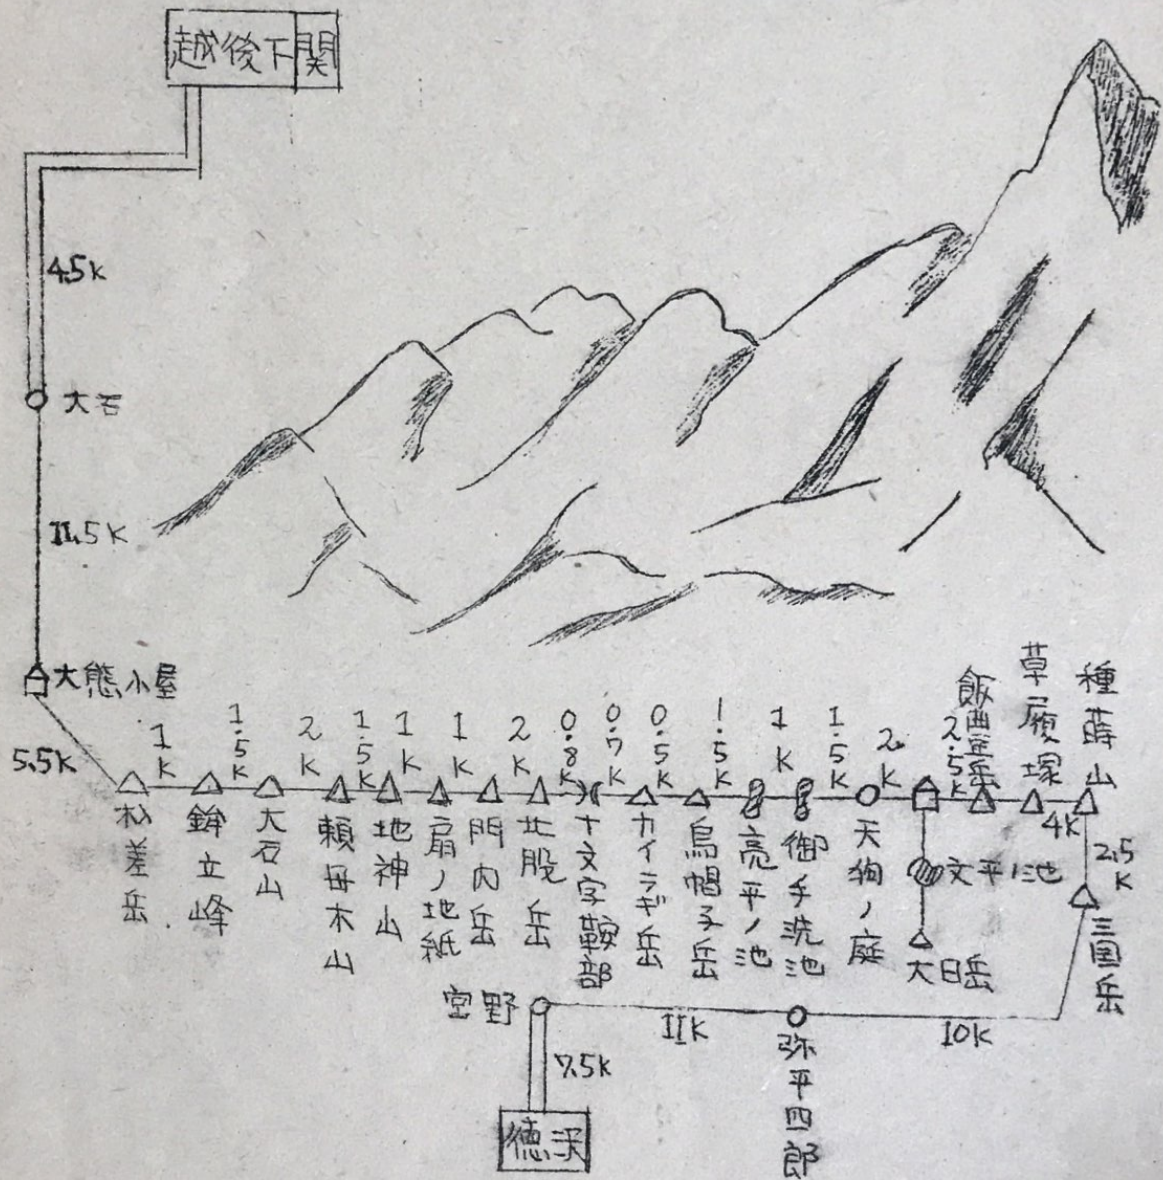 越後下関
4.5K
大石
11.5K
大熊小屋
5.5K
1K
1.5K
2K
1.5K
1K
1K
2K
0.8K
0.7K
0.5K
1.5K
1K
1.5K
2K
2.5K
飯豊岳
草履塚
種蒔山
4K
杁差岳
鉾立峰
大石山
頼母木山
地神山
扇ノ地紙
門内岳
北股岳
十文字鞍部
カイラギ岳
烏帽子岳
亮平ノ池
御手洗池
天狗ノ庭
文平ノ池
大日岳
2.5K
三国岳
宮野
11K
弥平四郎
10K
7.5K
徳沢